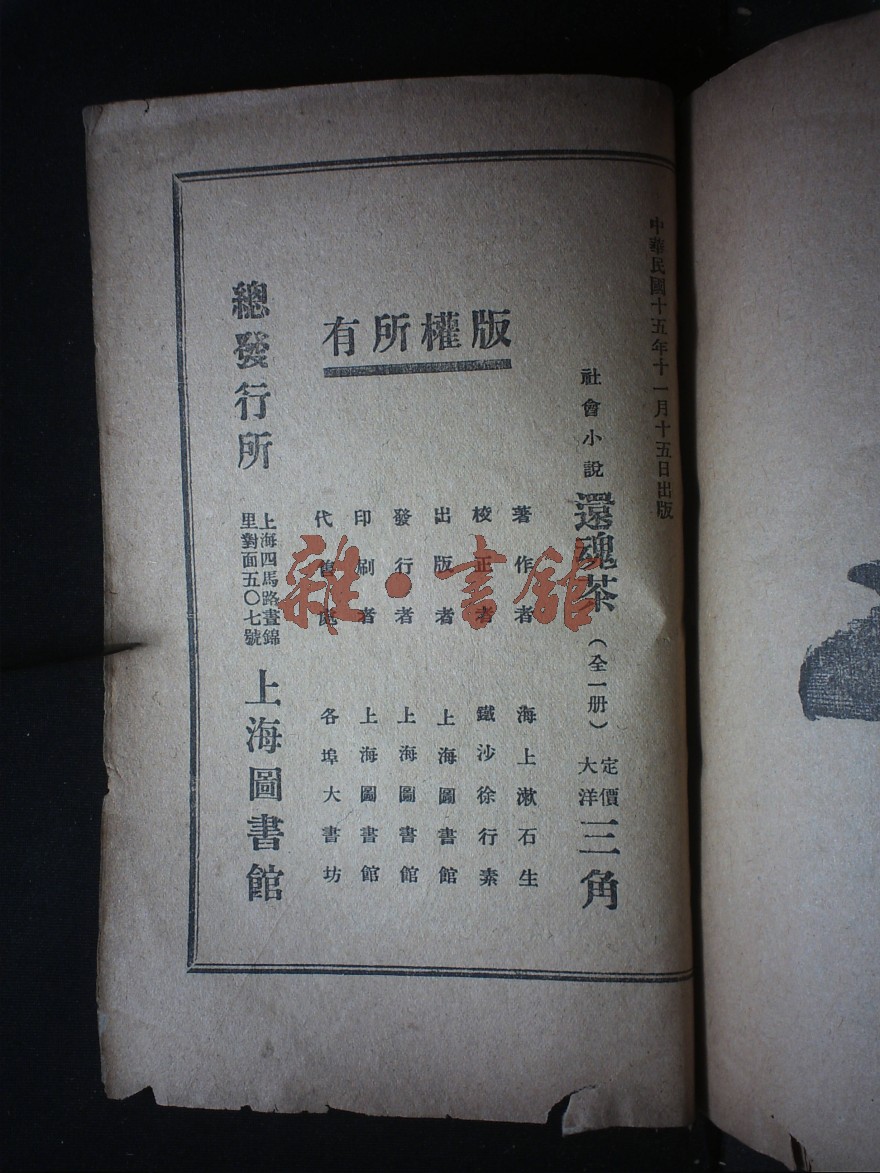 中華民國十五年十一月十五日出版
社會小說 還魂茶 (全一册) 定價大洋三角
版權所有
著作者 海上漱石生
校正者 鐵沙徐行素
出版者 上海圖書館
發行者 上海圖書館
印刷者 上海圖書館
代售處 各埠大書坊
總發行所 上海四馬路晝錦里對面五〇七號 上海圖書館
雜·書館